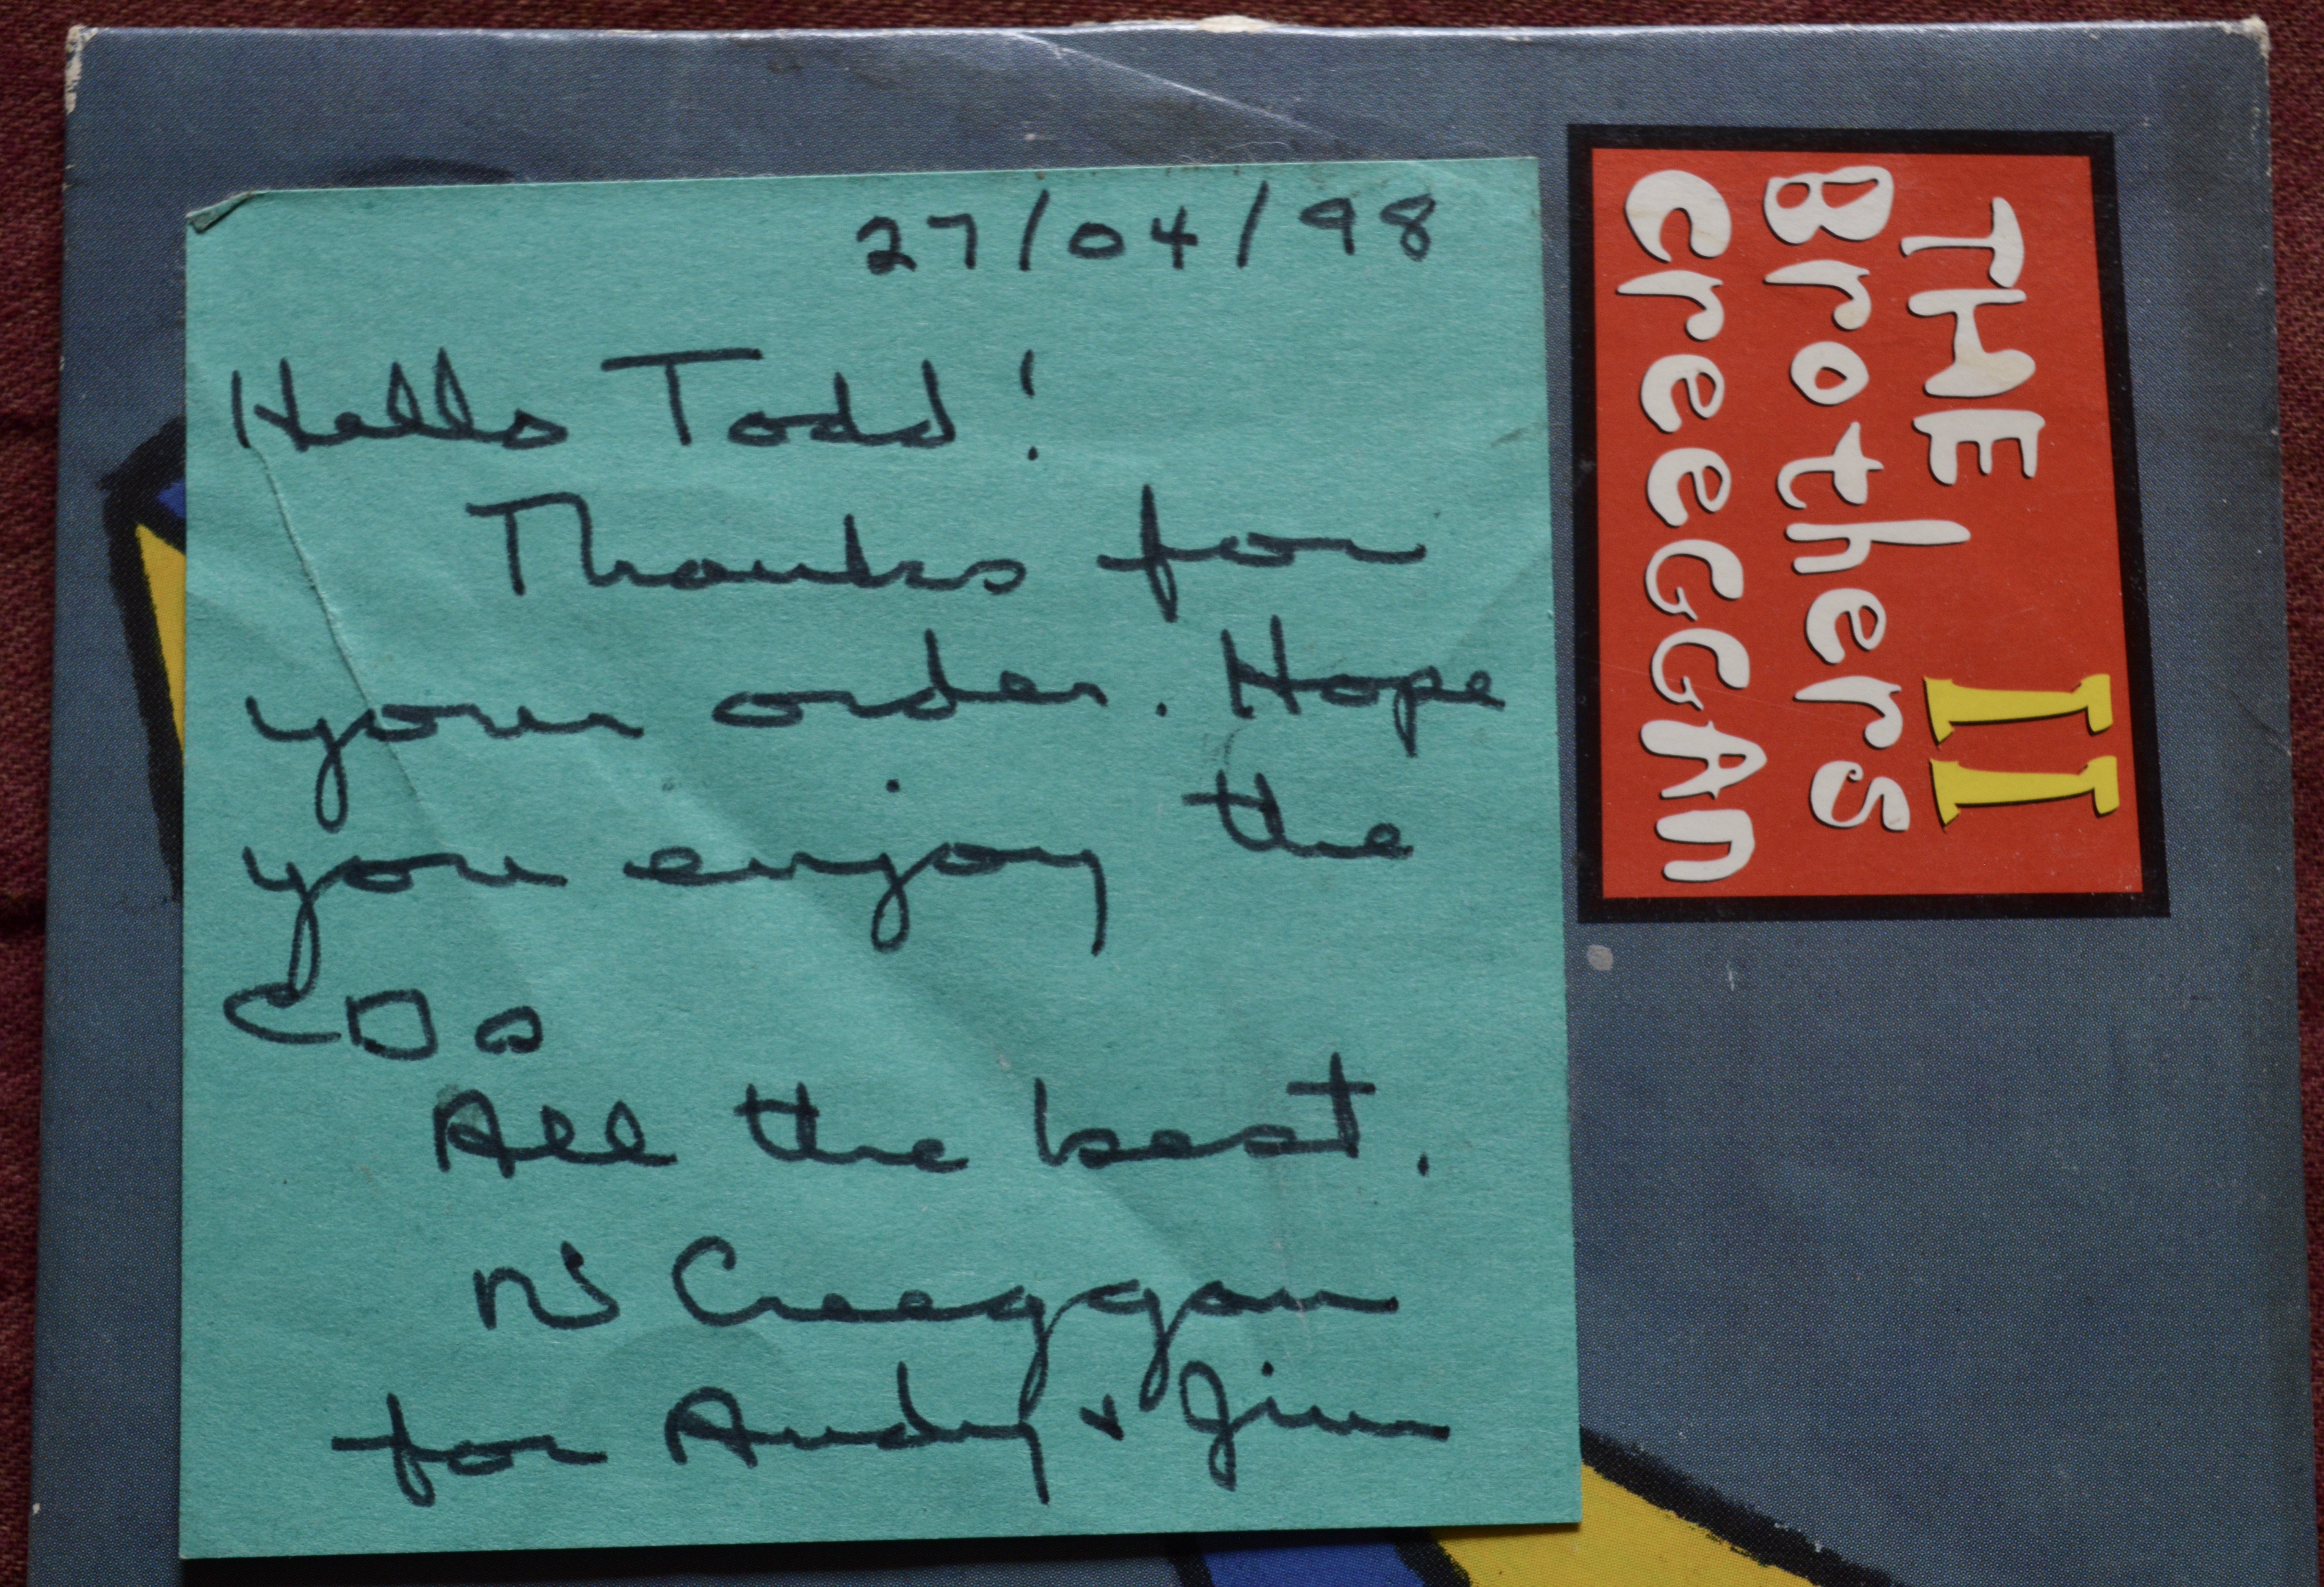 27/04/98
Hello Todd!
Thanks for
your order. Hope
you enjoy the
CDs
All the best.
Creeggan
for Andy + Jim
THE II
Brothers
CreeGGAn